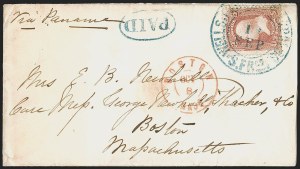 Via Panama
PAID
WELLS, FR
BOSTON
Mrs E. B.
Care Mess. George Newell, Thacher, & Co
Boston
Massachusetts